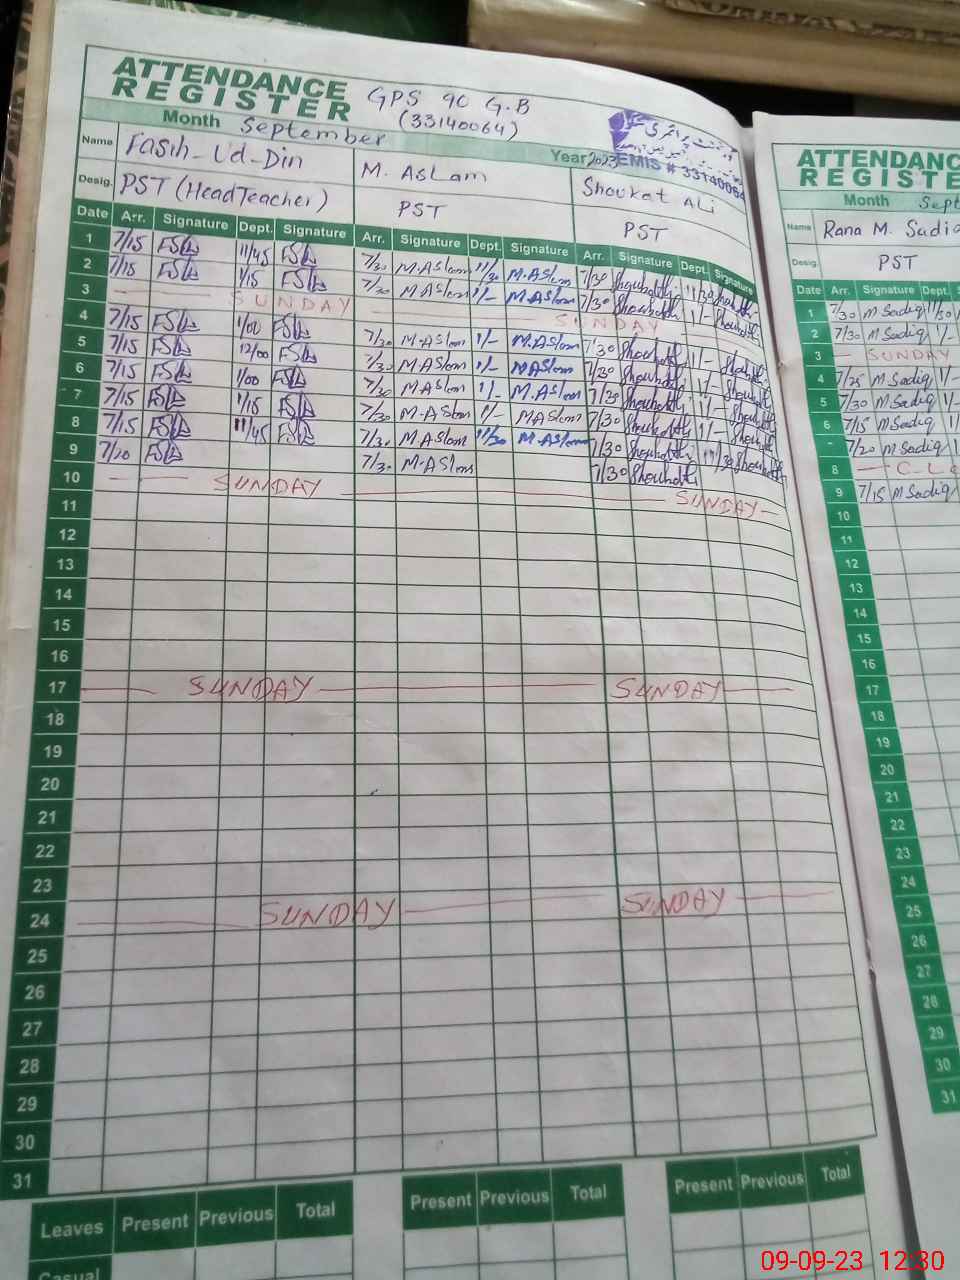 ATTENDANCE REGISTER GPS 90 G.B
(33140064)
Month September Year 2023 EMIS # 33140064
Name Fasih-Ud-Din M. Aslam Shoukat Ali
Desig. PST (HeadTeacher) PST PST
Date Arr. Signature Dept. Signature Arr. Signature Dept. Signature Arr. Signature Dept. Signature
1 7/15 11/45 7/30 M.Aslam 11/30 M.Aslam 7/30 11/30
2 7/15 1/15 7/30 M.Aslam 1/- M.Aslam 7/30 1/-
3 SUNDAY SUNDAY
4 7/15 1/00 7/30 M.Aslam 1/- M.Aslam 7/30 1/-
5 7/15 12/00 7/30 M.Aslam 1/- M.Aslam 7/30 1/-
6 7/15 1/00 7/30 M.Aslam 1/- M.Aslam 7/30 1/-
7 7/15 1/15 7/30 M.Aslam 1/- M.Aslam 7/30 1/-
8 7/15 11/45 7/30 M.Aslam 11/30 M.Aslam 7/30 11/30
9 7/20 7/30 M.Aslam 7/30
10 SUNDAY SUNDAY
11
12
13
14
15
16
17 SUNDAY SUNDAY
18
19
20
21
22
23
24 SUNDAY SUNDAY
25
26
27
28
29
30
31
Leaves Present Previous Total Present Previous Total Present Previous Total
Casual
ATTENDANC
REGISTE
Month Sept
Name Rana M. Sadiq
Desig. PST
Date Arr. Signature Dept.
1 7/30 M Sadiq 11/30
2 7/30 M Sadiq 1/-
3 SUNDAY
4 7/25 M Sadiq 1/-
5 7/30 M Sadiq 1/-
6 7/15 M Sadiq 1/-
7/20 M Sadiq 1/-
8
9 7/15 M Sadiq
10
11
12
13
14
15
16
17
18
19
20
21
22
23
24
25
26
27
28
29
30
31
09-09-23 12:30